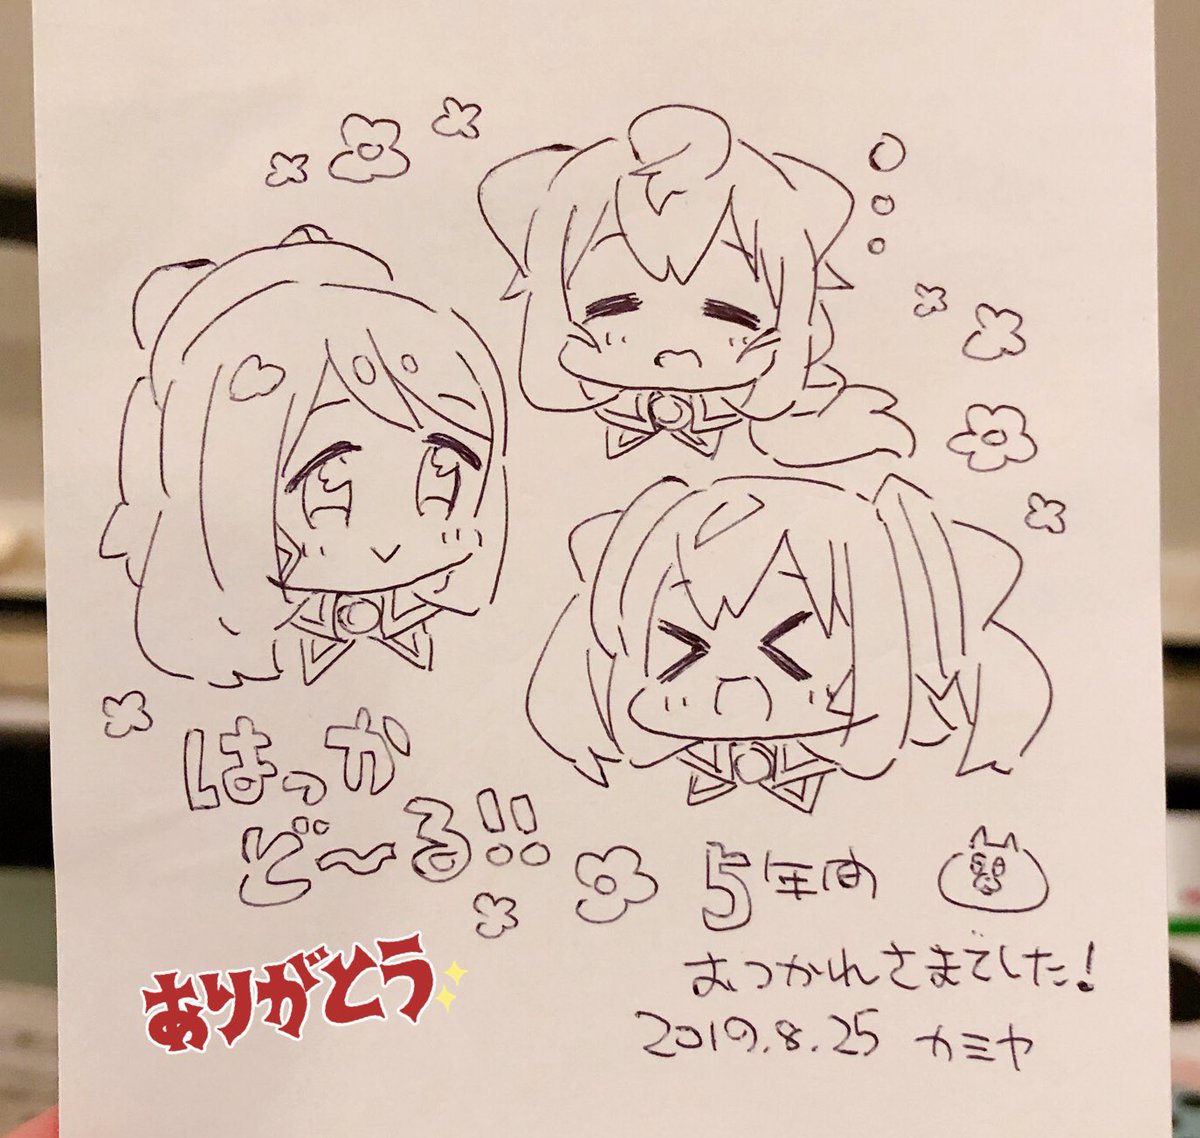 はっか
ど〜る!!
5年間
おつかれさまでした!
2019.8.25 カミヤ
ありがとう